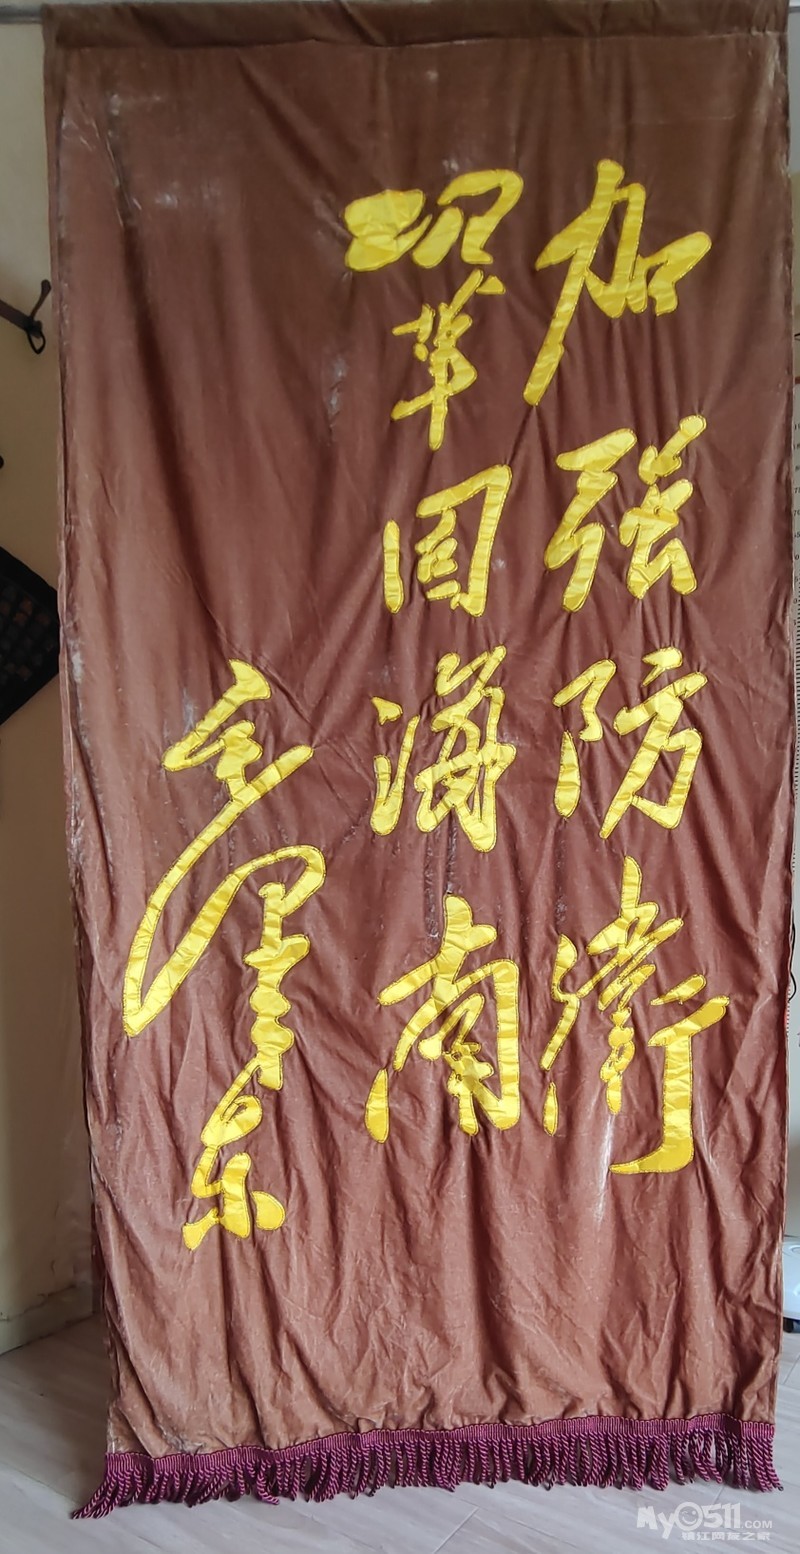 加强防衛
鞏固海南
毛泽东
My0511.COM
镇江网友之家